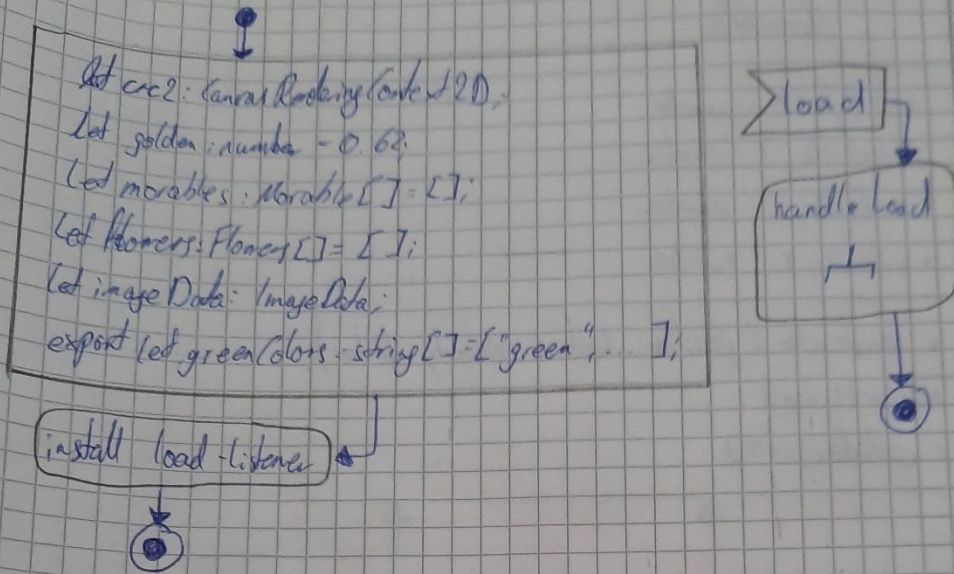 let crc2: CanvasRenderingContext2D;
let golden: number = 0.62;
let moveables: Moveable[] = [];
let flowers: Flower[] = [];
let imageData: ImageData;
export let greenColors: string[] = ["green", . . ];
install load-listener
load
handle load